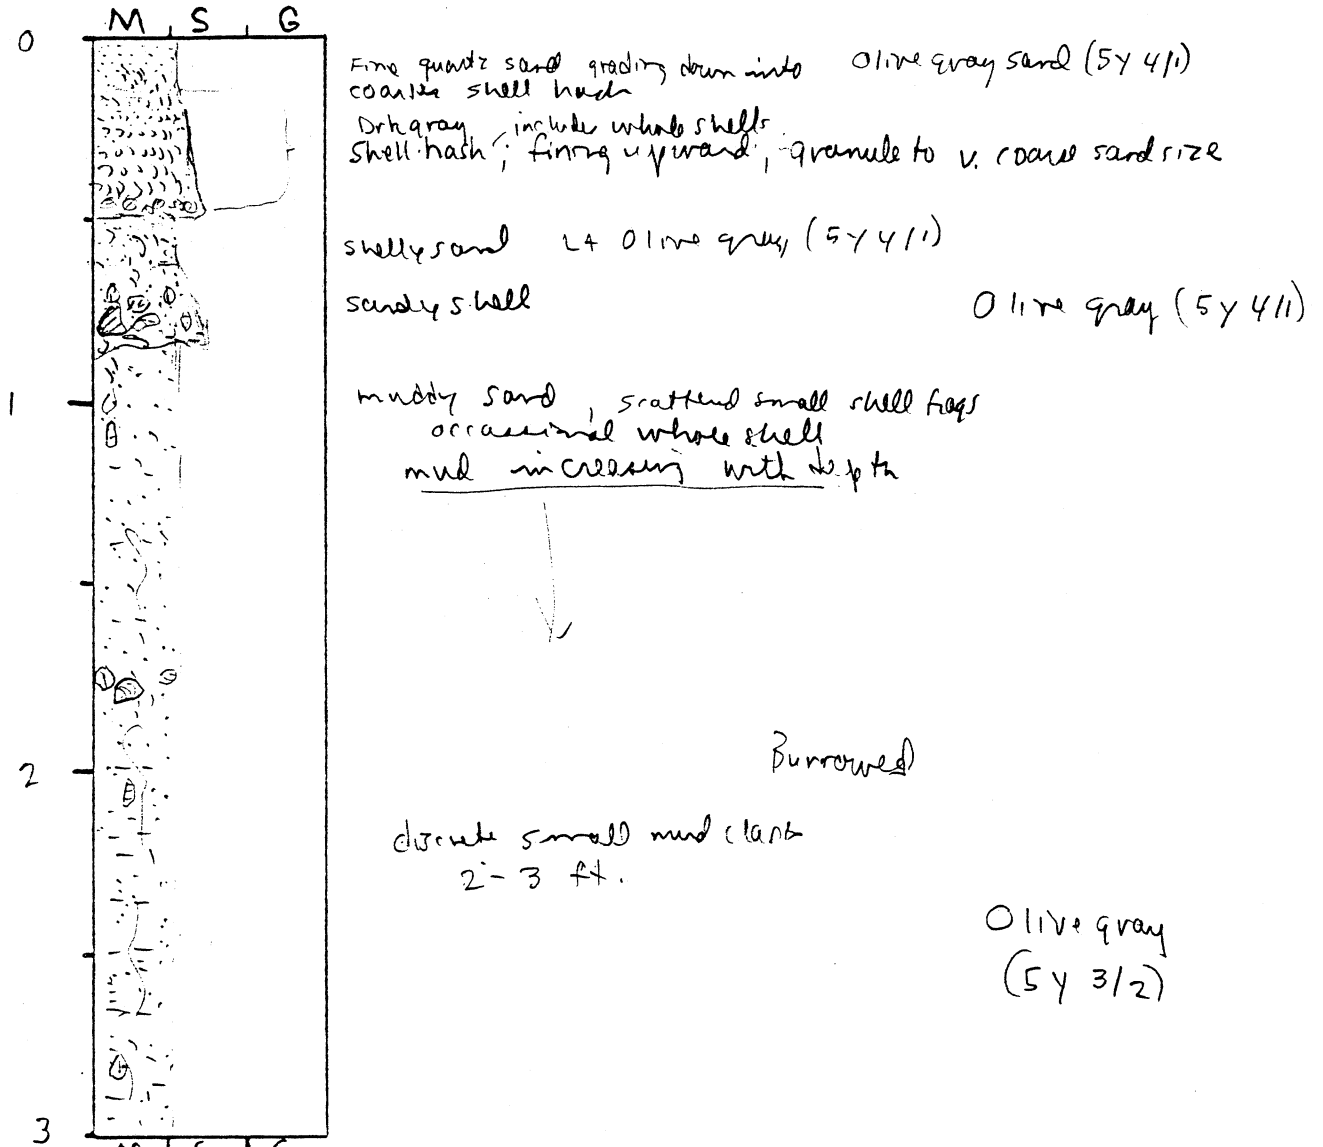 M S G
0
Fine quartz sand grading down into Olive gray sand (5Y 4/1)
coarser shell hash
Drk gray, includes whole shells
Shell hash; fining upward, granule to v. coarse sand size
shelly sand Lt Olive gray (5Y 4/1)
sandy shell Olive gray (5Y 4/1)
1
muddy sand, scattered small shell frags
occassional whole shell
mud increasing with depth
2
Burrowed
discrete small mud clasts
2-3 ft.
Olive gray
(5Y 3/2)
3